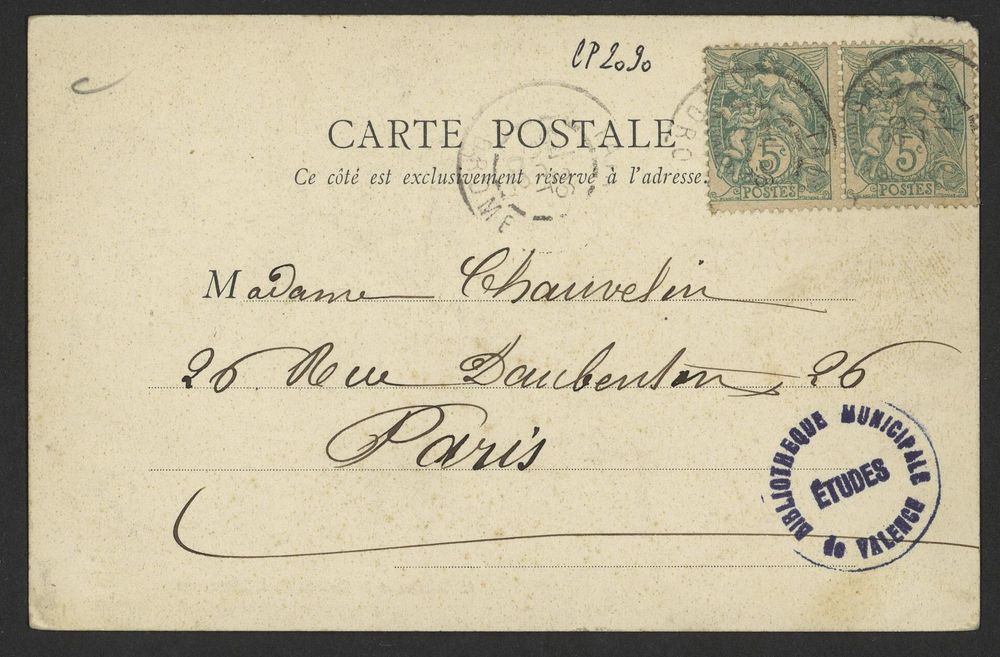 CP2090
CARTE POSTALE
Ce côté est exclusivement réservé à l'adresse.
5c
POSTES
5c
POSTES
DROME
Madame Chauvelin
26 Rue Daubenton, 26
Paris
BIBLIOTHEQUE MUNICIPALE
ÉTUDES
de VALENCE